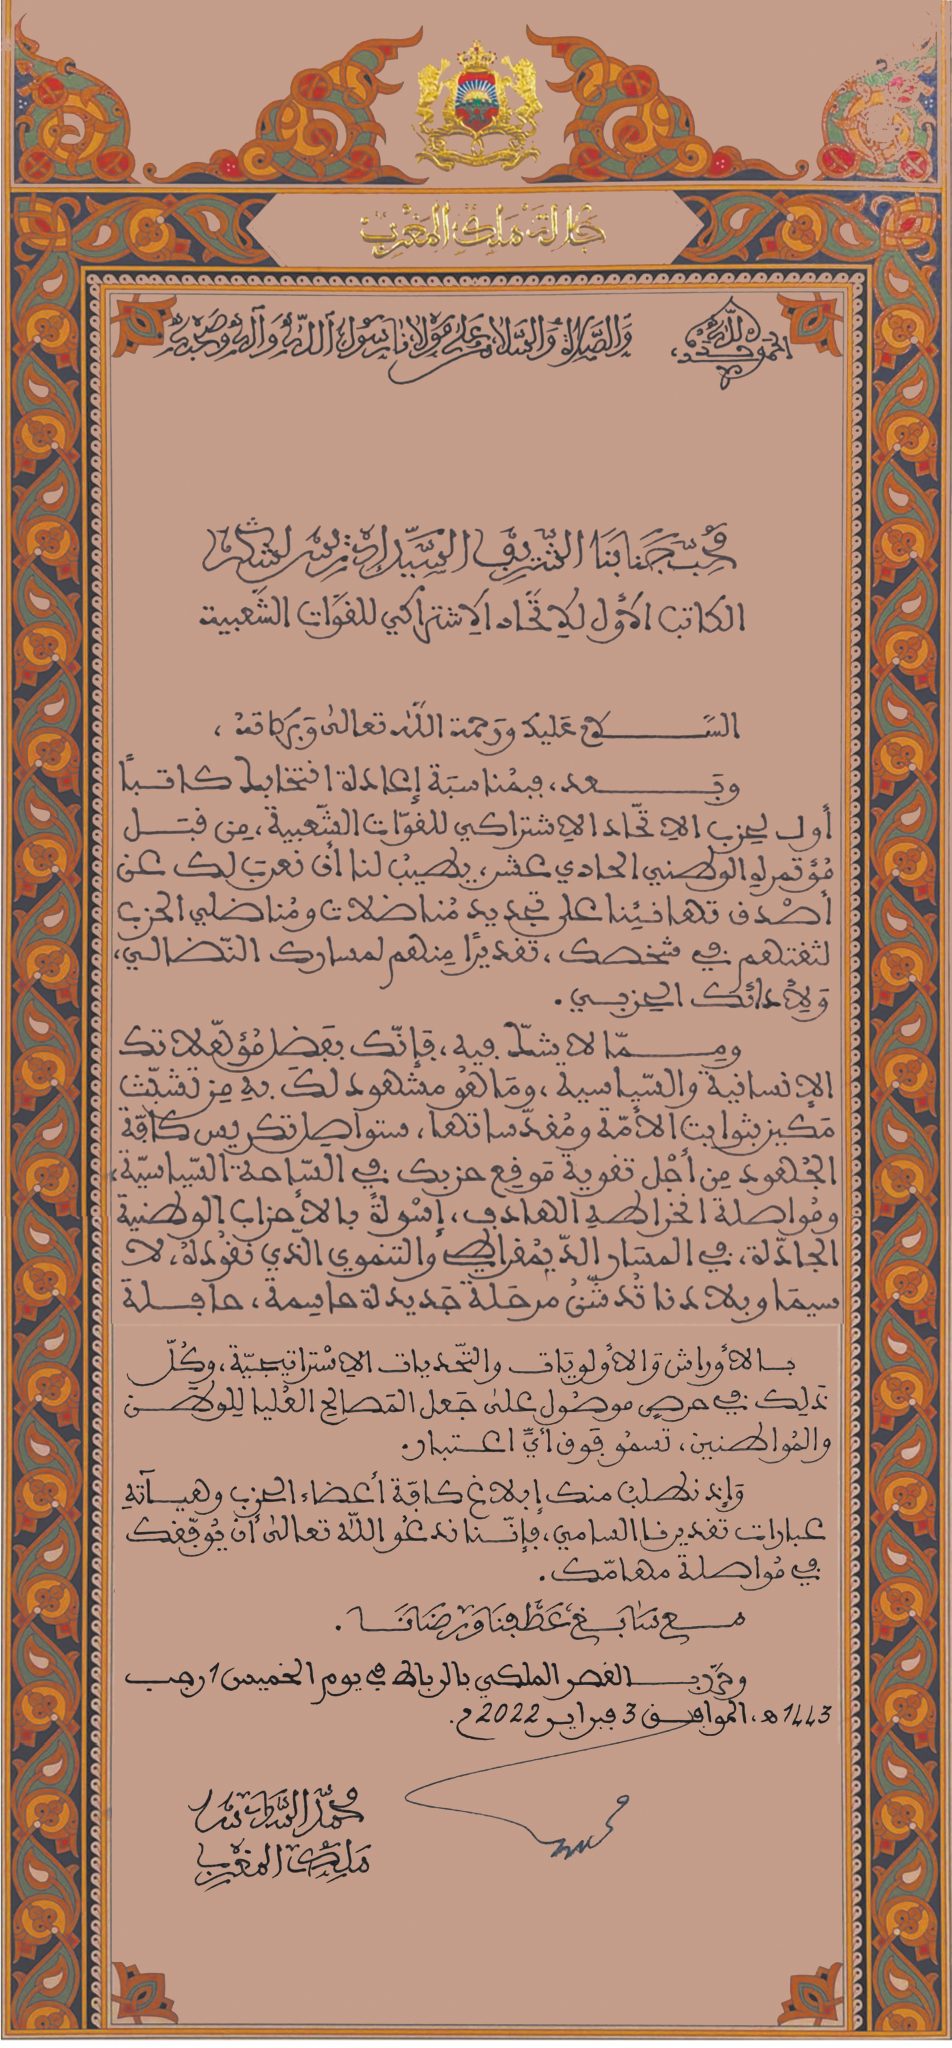 جلالة ملك المغرب
الحمد لله وحده
والصلاة والسلام على مولانا رسول الله وآله وصحبه
محب جنابنا الشريف السيد إدريس لشكر
الكاتب الأول للاتحاد الاشتراكي للقوات الشعبية
السلام عليك ورحمة الله تعالى وبركاته،
وبعد، فبمناسبة إعادة انتخابك كاتبًا
أول لحزب الاتّحاد الاشتراكي للقوّات الشّعبية، مِن قبَل
مُؤتمره الوطني الحادي عشر، يطيبُ لنا أن نعرب لك عن
أصْدق تهانئِنا على تجديد مُناضلات ومُناضلي الحزب
لثقتهم في شخصك، تقديرًا مِنهم لمسارك النّضالي،
وَلأدائك الحزبي.
ومِمّا لا شكّ فيه، فإنّك بفضل مُؤهّلاتك
الإنسانية والسّياسية، ومَا هُو مشهود لك به مِن تشبّث
مَكين بثوابت الأمّة ومُقدّساتها، ستواصل تكريس كافّة
الجُهود مِن أجْل تقوية مَوقع حزبك في السّاحة السّياسيّة،
ومُواصلة انخراطه الهادف، إسْوةً بالأحزاب الوطنية
الجادّة، في المسَار الدّيمُقراطي والتنموي الّذي نقُودهُ، لا
سيمَا وبلادنا تُدشّنُ مرحَلة جَديدة حاسِمة، حافلة
بالأوراش وَالأولويات والتّحديات الاسْتراتيجيّة، وكُلّ
ذَلك في حرص موصُول على جَعل المَصالح العُليا للوطَن
والمُواطنين، تسمُو فوق أيِّ اعتبار.
وَإذ نطلبُ منك إبلاغ كافّة أعضاء الحزب وهيآته
عبارات تقديرنا السامي، فإنّنا ندعُو الله تعالى أن يُوفّقك
في مُواصلة مهامّك.
مع سَابغ عَطْفنا وَرضَانَا.
وحُرّر بالقصر الملكي بالرباط في يوم الخميس 1 رجب
1443 هـ، الموافق 3 فبراير 2022 م.
محمد السادس
ملك المغرب